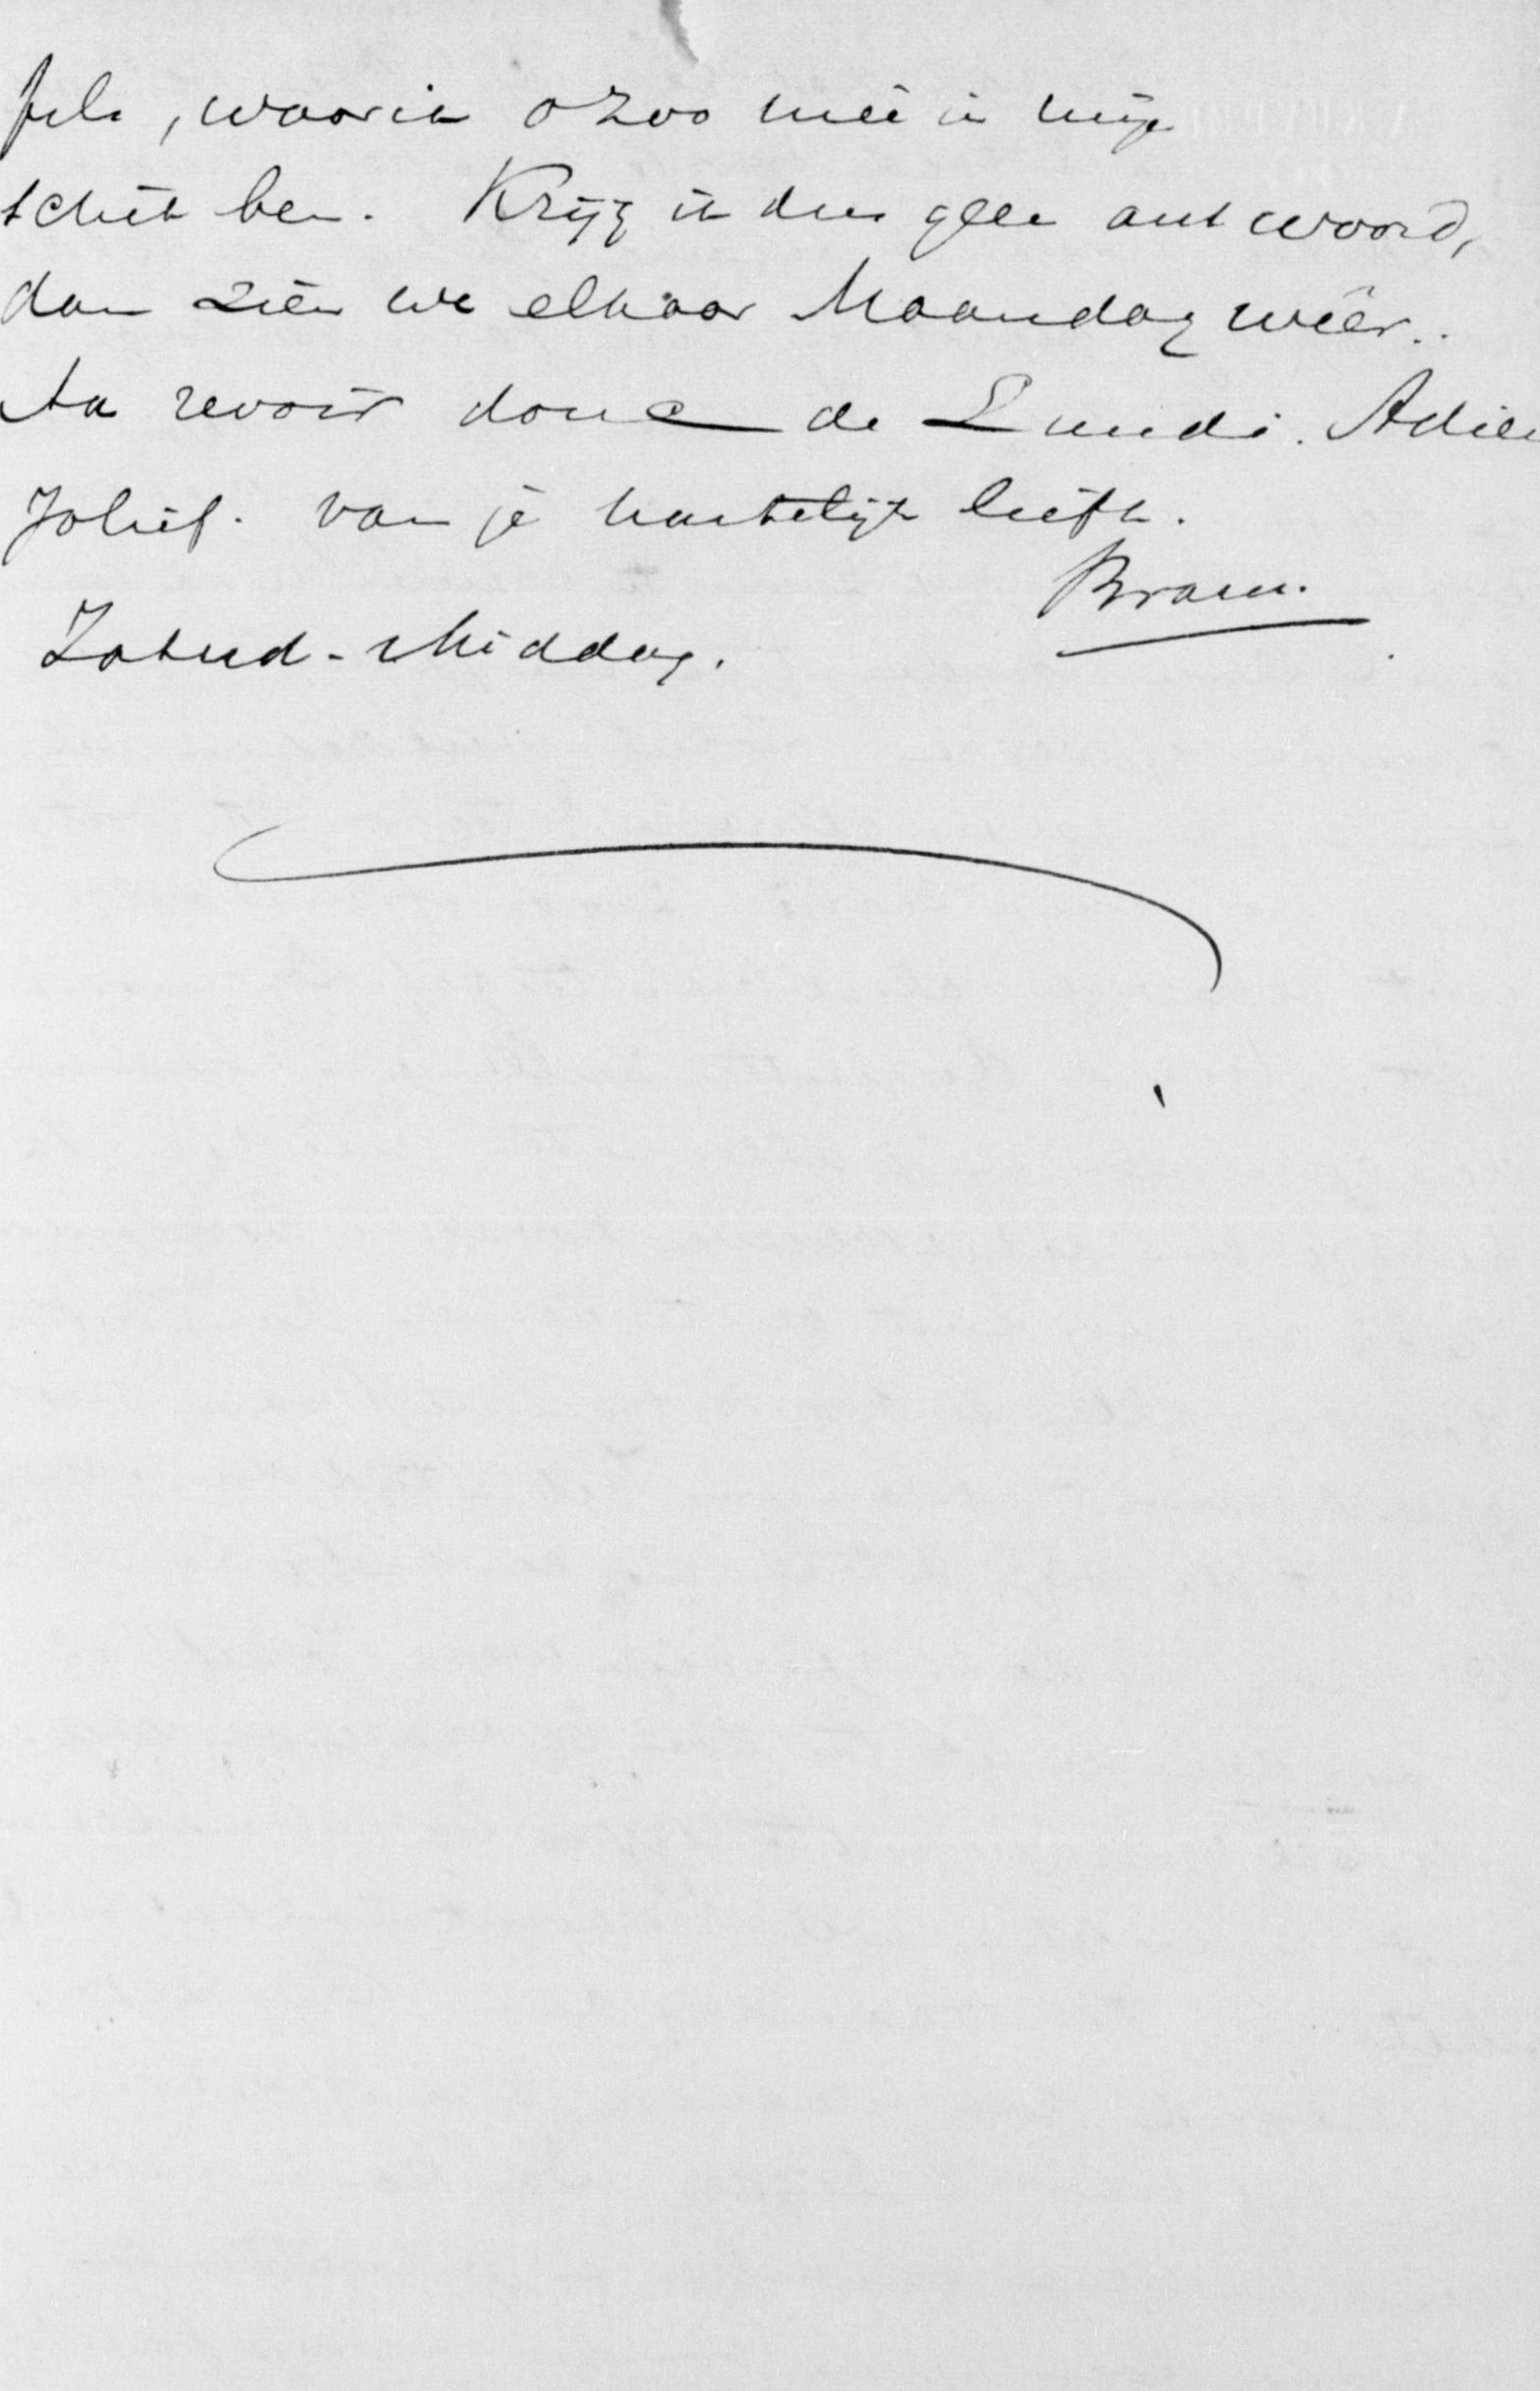 fels, waarin ozoo mee in mijn
schik ben. Krijg ik dus geen antwoord,
dan zien we elkaar Maandag weêr..
Au revoir donc de Lundi. Adieu
van je hartelijk liefh.
Bram.
Zatusd-Middag.